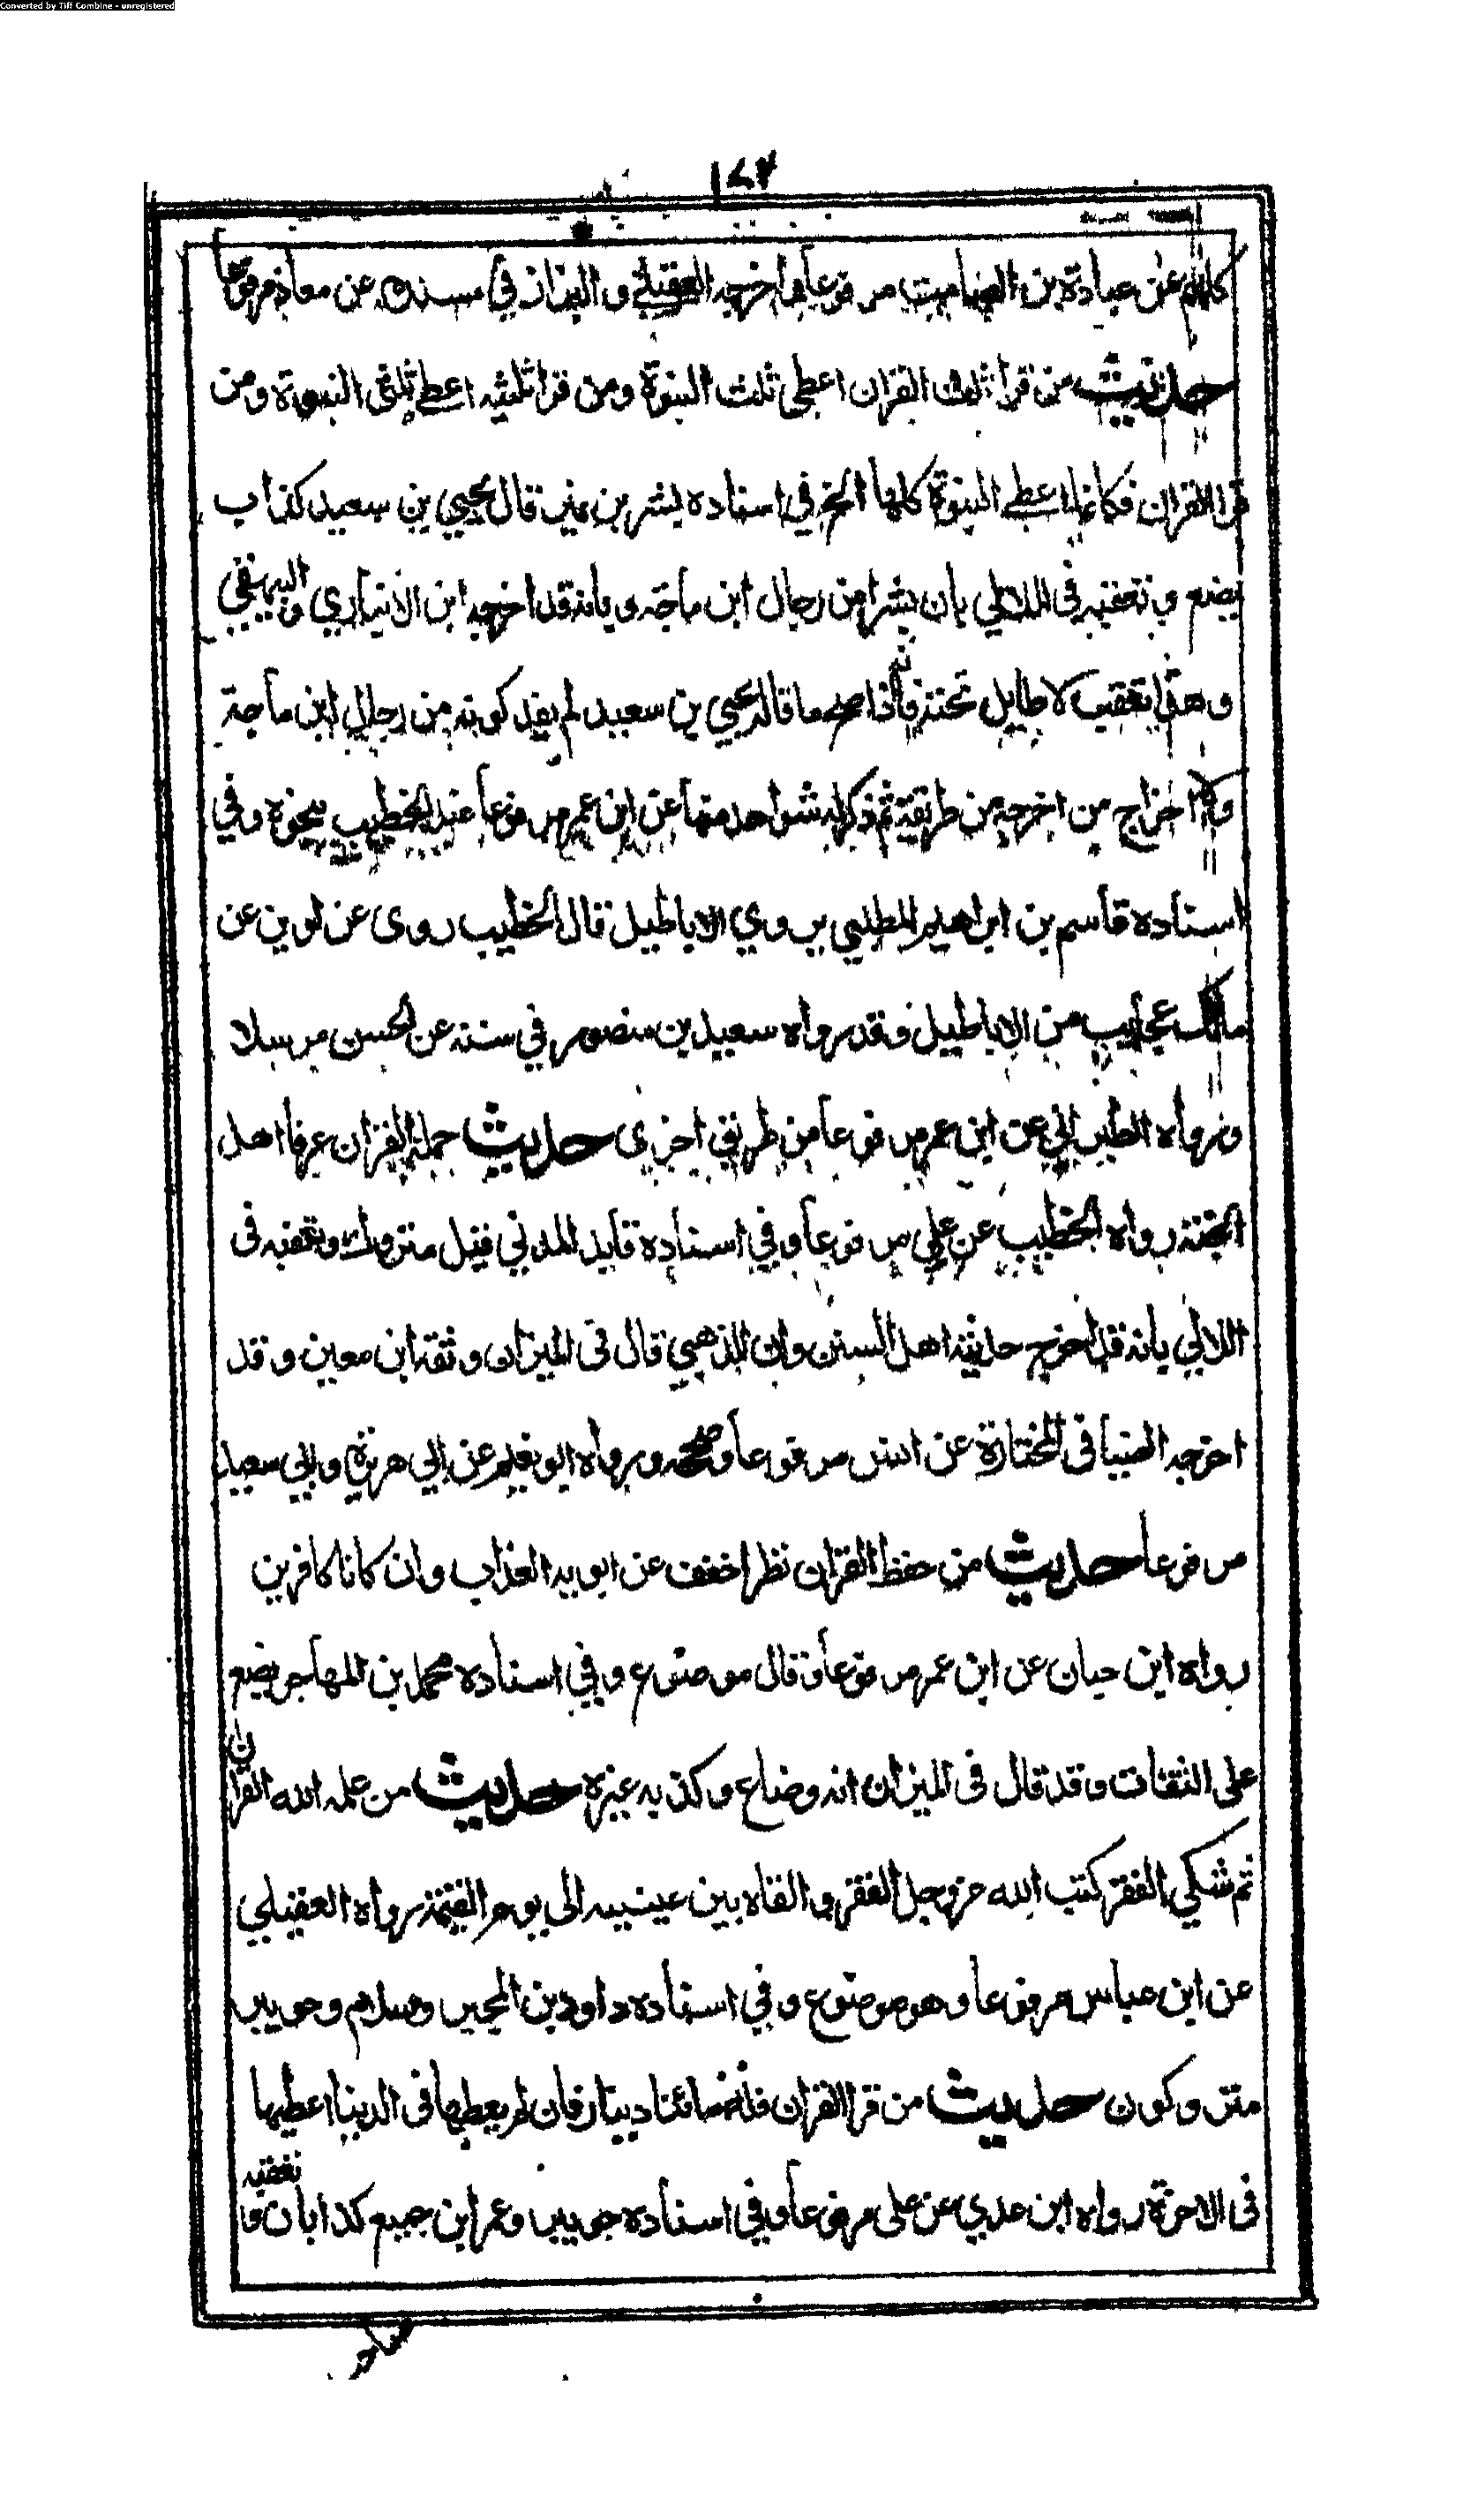 Converted by Tiff Combine - unregistered
١٤٢
عن عبادة بن الصامت مرفوعا اخرجه العقيلي والبزار في مسنده عن معاذ مرفوعا
حديث من قرا ثلث القران اعطي ثلث النبوة ومن قرا ثلثيه اعطي ثلثي النبوة ومن
قرا القران فكانما اعطي النبوة كلها الخ في اسناده بشر بن نمير قال يحيي بن سعيد كذاب
يضع وتعقبه في اللالي بان بشرا من رجال ابن ماجة وبانه قد اخرجه ابن الانباري والبيهقي
وهذا تعقب لا طايل تحته فانه اذا صح ما قاله يحيي بن سعيد لم يفد كونه من رجال ابن ماجة
ولا اخراج من اخرجه من طريقه ثم ذكر له شواهد منها عن ابن عمر مرفوعا عند الخطيب بنحوه وفي
اسناده قاسم بن ابراهيم الملطيي يروي الاباطيل قال الخطيب روى عن لوين عن
مالك عجايب من الاباطيل وقد رواه سعيد بن منصور في سننه عن الحسن مرسلا
ورواه الطبراني عن ابن عمر مرفوعا من طريق اخرى حديث حملة القران عرفا اهل
الجنة رواه الخطيب عن علي مرفوعا وفي اسناده فايد المدني قيل متروك وتعقبه فى
اللالي بانه قد اخرج حديثه اهل السنن وان الذهبي قال فى الميزان وثقه ابن معين وقد
اخرجه الضيا فى المختارة عن انس مرفوعا وصححه ورواه ابو نعيم عن ابي هريرة وابي سعيد
مرفوعا حديث من حفظ القران نظرا خفف عن ابويه العذاب وان كانا كافرين
رواه ابن حبان عن ابن عمر مرفوعا وقال موضوع وفي اسناده محمد بن المهاجر يضع
على الثقات وقد قال فى الميزان انه وضاع وكذبه غيره حديث من علمه الله القران
ثم شكي الفقر كتب الله عز وجل الفقر والفاقه بين عينيه الى يوم القيمة رواه العقيلي
عن ابن عباس مرفوعا وهو موضوع وفي اسناده داود بن المحبر وسلام وجويبر
متروكون حديث من قرا القران فله مائتا دينار فان لم يعطها فى الدنيا اعطيها
فى الاخرة رواه ابن عدي عن على مرفوعا وفي اسناده جويبر وعمر ابن جميع كذابان وتعقبه